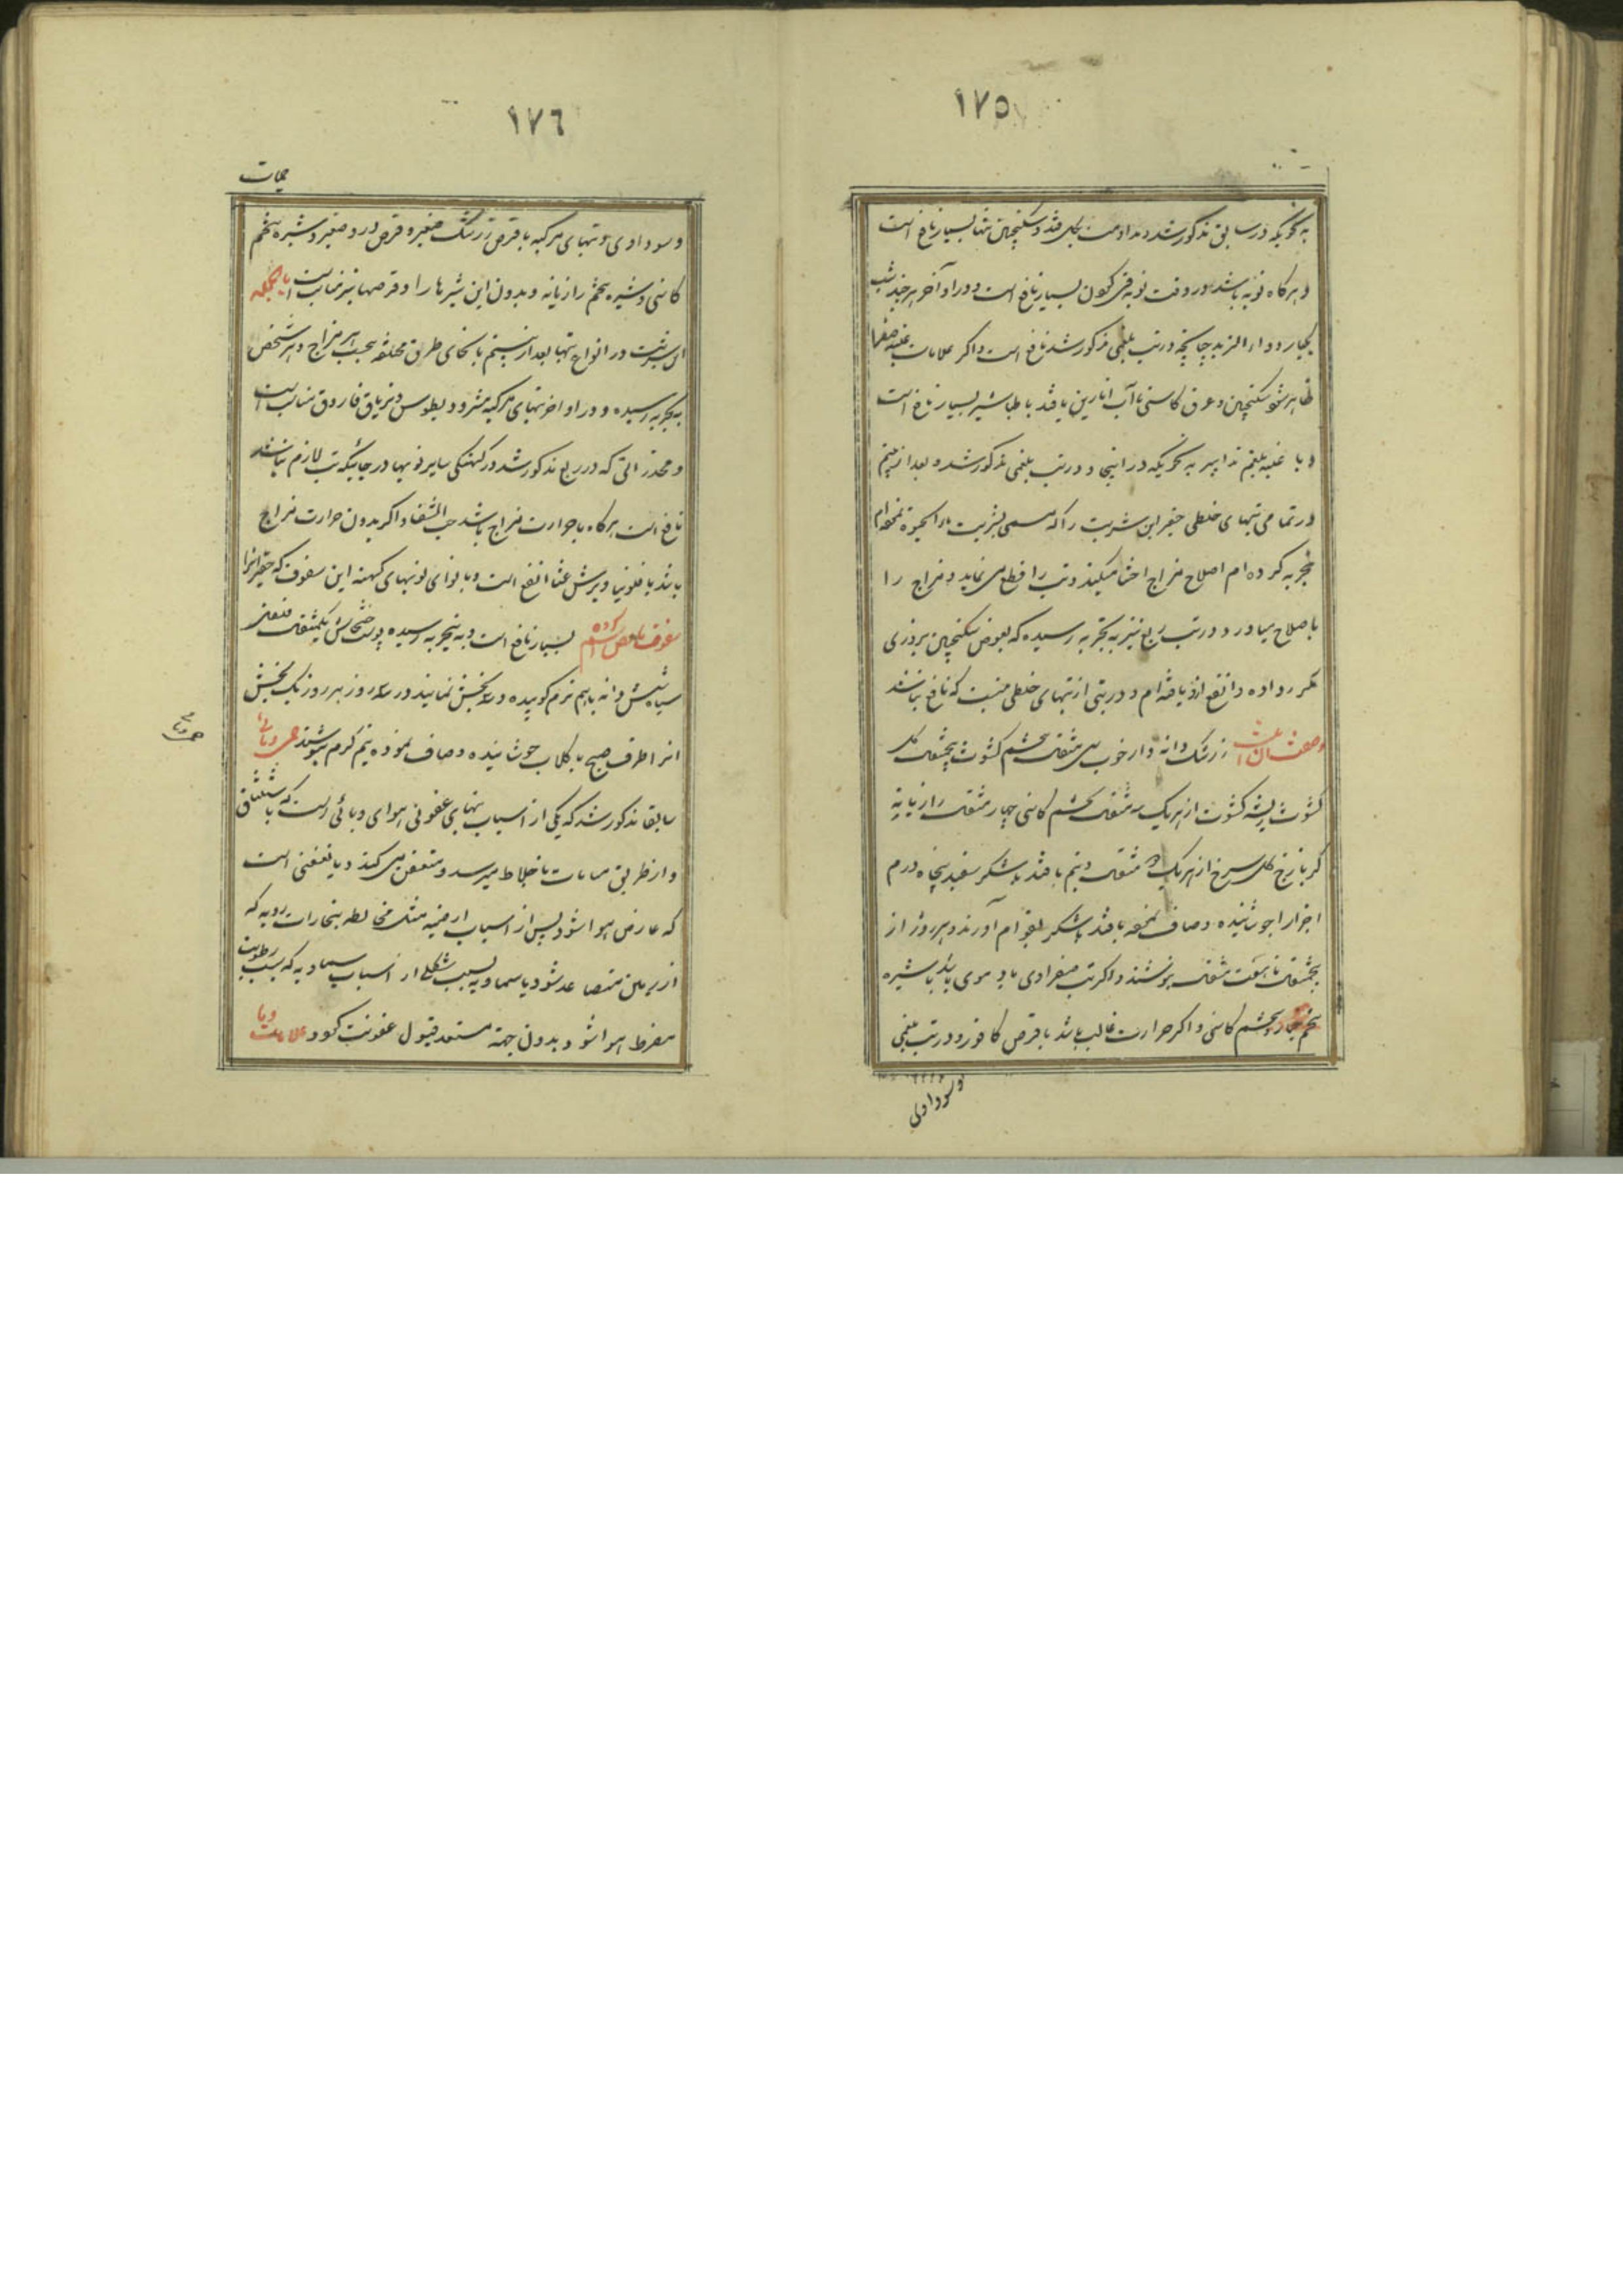 ١٧٥
به نحویکه در سابق مذکور شد و مداومت بگل قند و سکنجبین تنها بسیار نافع است
و هرگاه نوبه باشد در وقت نوبه قی کردن بسیار نافع است و در اواخر هر چند شب
یکبار دواء التربد چنانچه در تب بلغمی مذکور شد نافع است و اگر علامات غلبه صفرا
ظاهر شود سکنجبین و عرق کاسنی با آب انارین یا قند با طباشیر بسیار نافع است
و با غلبه بلغم تدابیر به نحویکه در اینجا و در تب بلغمی مذکور شد و بعد از نضج
در تمامی تبهای خلطی حقیر این شربت را که مسمی بشربت ماء الحیوة نموده‌ام
تجربه کرده ام اصلاح مزاج احشا میکند و تب را قطع می نماید و مزاج را
باصلاح میاورد و در تب ربع نیز به تجربه رسیده که بعوض سکنجبین بزوری
مکرر داده و انفع ازو یافته ام و در تبی از تبهای خلطی نیست که نافع نباشد
وصفت آن اینست زرشک دانه دار خوب سی مثقال تخم کشوث پنجمثقال گل
کشوث ریشه کشوث از هریک سه مثقال تخم کاسنی چهار مثقال رازیانه
گل سرخ از هریک دو مثقال و نیم با قند یا شکر سفید پنجاه درم
اجزا را جوشانیده و صاف نموده با قند یا شکر بقوام آورند و هر روز از
پنجمثقال تا هفت مثقال بنوشند و اگر تب صفراوی یا دموی باشد با شیره
تخم خیار و تخم کاسنی و اگر حرارت غالب باشد با قرص کافور و در تب بلغمی
و سوداوی
١٧٦
حمیات
و سوداوی و تبهای مرکبه با قرص زرشک صغیر و قرص ورد صغیر و شیره تخم
کاسنی و شیره تخم رازیانه و بدون این شیرها را و قرصها نیز مناسبست بالجمله
این شربت در انواع تبها بعد از نضج بانحای طرق مختلفه بحسب هر مزاج و هر شخص
به تجربه رسیده و در اواخر تبهای مرکبه مثرودیطوس و تریاق فاروق مناسب است
و مخدراتی که در ربع مذکور شد در کهنگی سایر نوبها در جائیکه تب لازم نباشد
نافع است هرگاه با حرارت مزاج باشد حب الشفا و اگر بدون حرارت مزاج
باشد با فلونیا و برشعثا انفع است و با نوای نوبهای کهنه این سفوف که حقیر آنرا
سفوف ناقص کرده ام بسیار نافع است و به تجربه رسیده پوست خشخاش یکمثقال فلفل
سیاه شش دانه با هم نرم کوبیده و سه بخش نمایند در سه روز هر روز یک بخش
انرا طرف صبح با گلاب جوشانیده و صاف نموده نیم گرم بنوشند حمی وبائی
سابقا مذکور شد که یکی از اسباب تبهای عفونی هوای وبائی است که با استنشاق
و از طریق مسامات باخلاط میرسد و متعفن می کند و یا تعفنی است
که عارض هوا شود پس از اسباب ارضیه مثل مخالطه بخارات ردیه که
از زمین متصاعد شود یا سماویه بسبب شکلی از اسباب سماویه که سبب رطوبت
مفرط هوا شود و بدون جهة مستعد قبول عفونت گردد علامات وبا
حمی وبائی